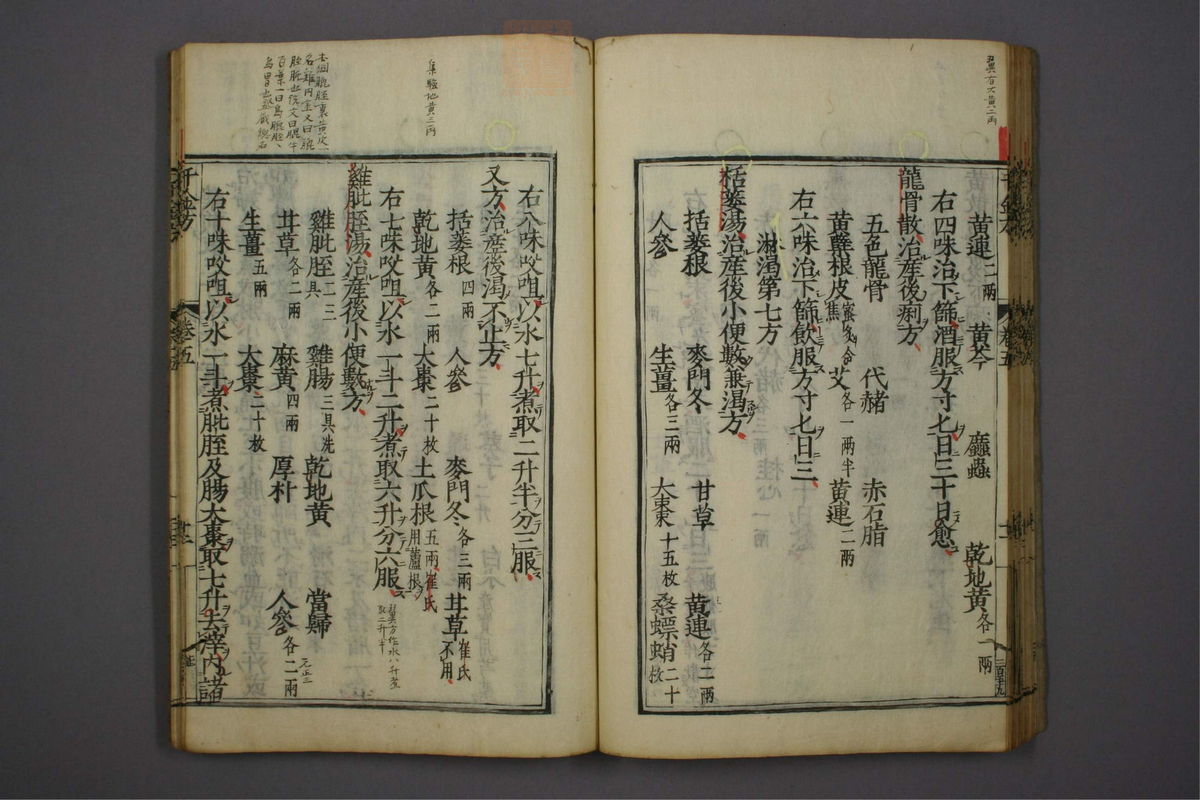 黄連二兩 黄芩 䗪蟲 乾地黄各一兩
右四味治下篩酒服方寸七日三十日愈
龍骨散治産後痢方
五色龍骨 代赭 赤石脂
黄蘗根皮蜜炙令焦 艾各一兩半 黄連二兩
右六味治下篩飲服方寸七日三
淋渴第七方
栝蔞湯治産後小便數兼渴方
括蔞根 麥門冬 甘草 黄連各二兩
人參 生薑各三兩 大棗十五枚 桑螵蛸二十枚
右八味㕮咀以水七升煮取二升半分三服
又方治産後渴不止方
括蔞根四兩 人參 麥門冬各三兩 甘草崔氏不用
乾地黄各二兩 大棗二十枚 土瓜根五兩崔氏用蘆根
右七味㕮咀以水一斗二升煮取六升分六服
雞肶胵湯治産後小便數方
雞肶胵二三具 雞腸三具洗 乾地黄 當歸
甘草各二兩 麻黄四兩 厚朴 人參各二兩
生薑五兩 大棗二十枚
右十味㕮咀以水一斗煮肶胵及腸大棗取七升去滓内諸
千金方 卷五
翼百大黄二兩
集驗地黄三兩